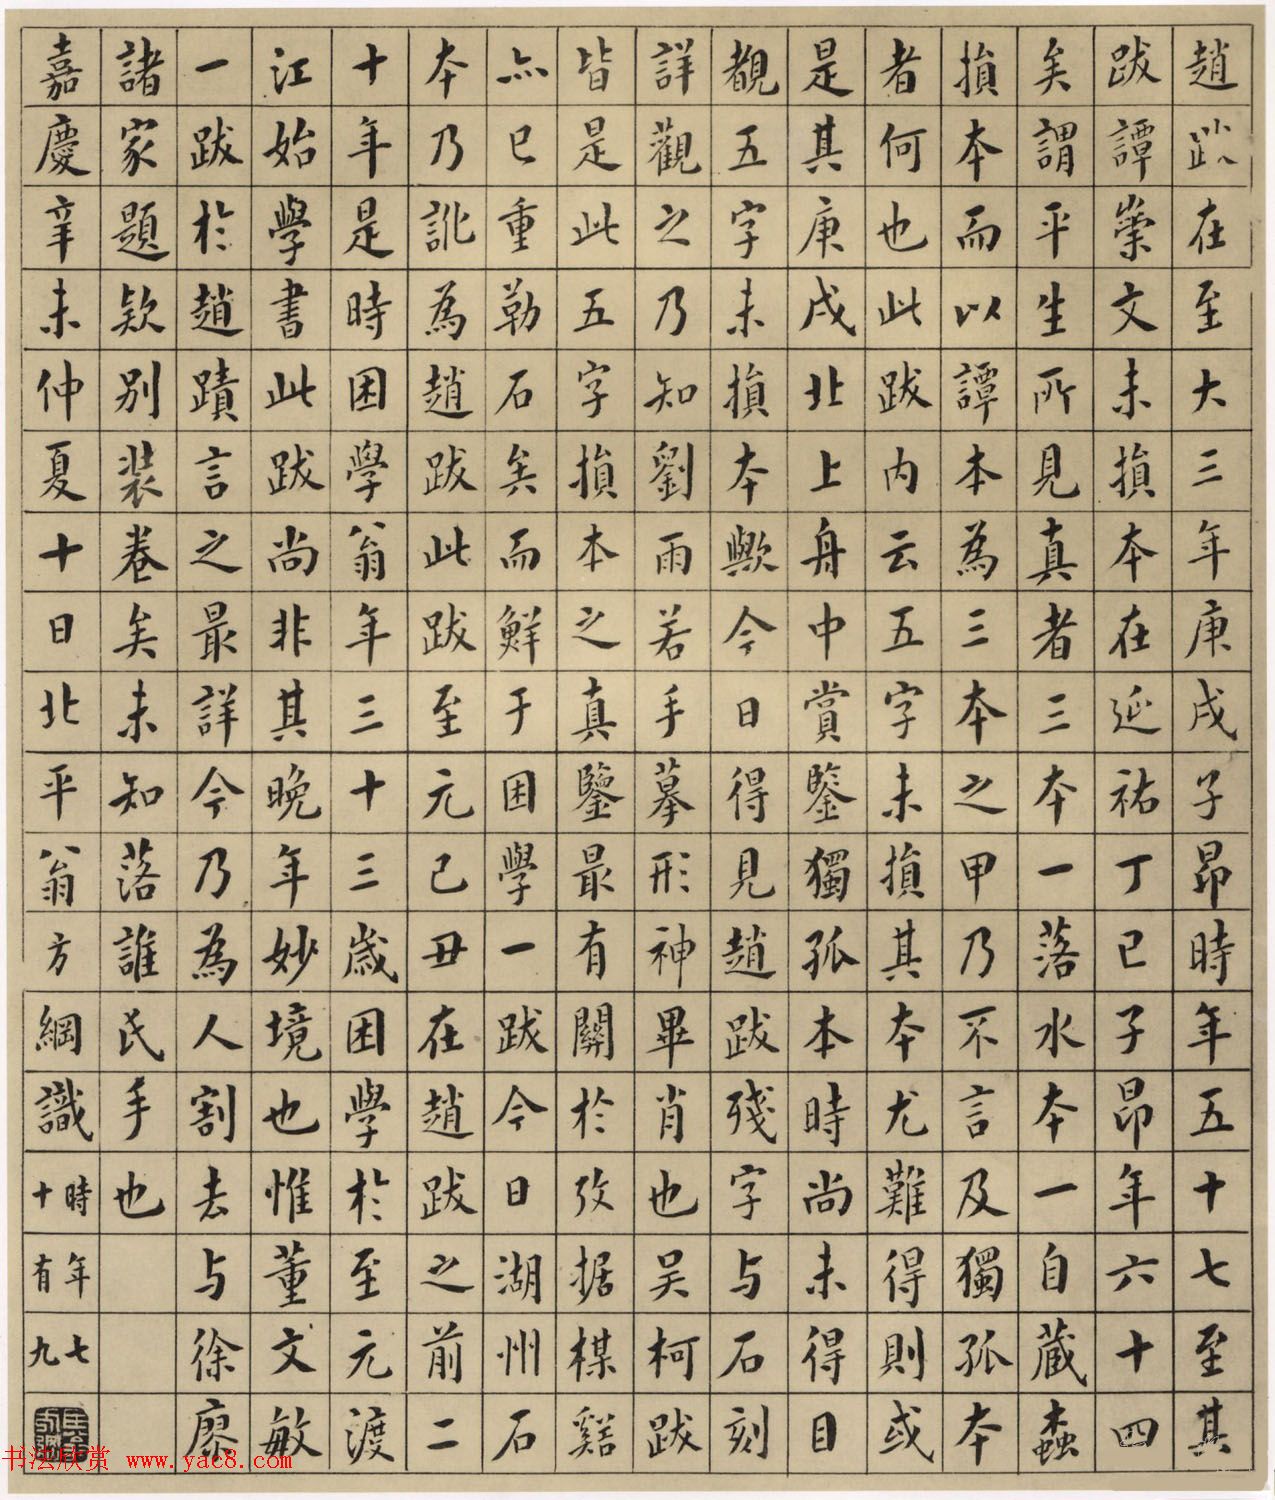 趙跋在至大三年庚戌子昂時年五十七至其
跋譚崇文未損本在延祐丁巳子昂年六十四
矣謂平生所見真者三本一落水本一自藏本蠡
損本而以譚本為三本之甲乃不言及獨孤本
者何也此跋內云五字未損其本尤難得則或
是其庚戌北上舟中賞鑒獨孤本時尚未得目
覩五字未損本歟今日得見趙跋殘字与石刻
詳觀之乃知劉雨若手摹形神畢肖也吴柯跋
皆是此五字損本之真鑒最有關於攷据楳谿
亦已重勒石矣而鮮于困學一跋今日湖州石
本乃訛為趙跋此跋至元己丑在趙跋之前二
十年是時困學翁年三十三歲困學於至元渡
江始學書此跋尚非其晚年妙境也惟董文敏
一跋於趙蹟言之最詳今乃為人割去与徐廖
諸家題款別装卷矣未知落誰氏手也
嘉慶辛未仲夏十日北平翁方綱識時年七十有九
书法欣赏 www.yac8.com